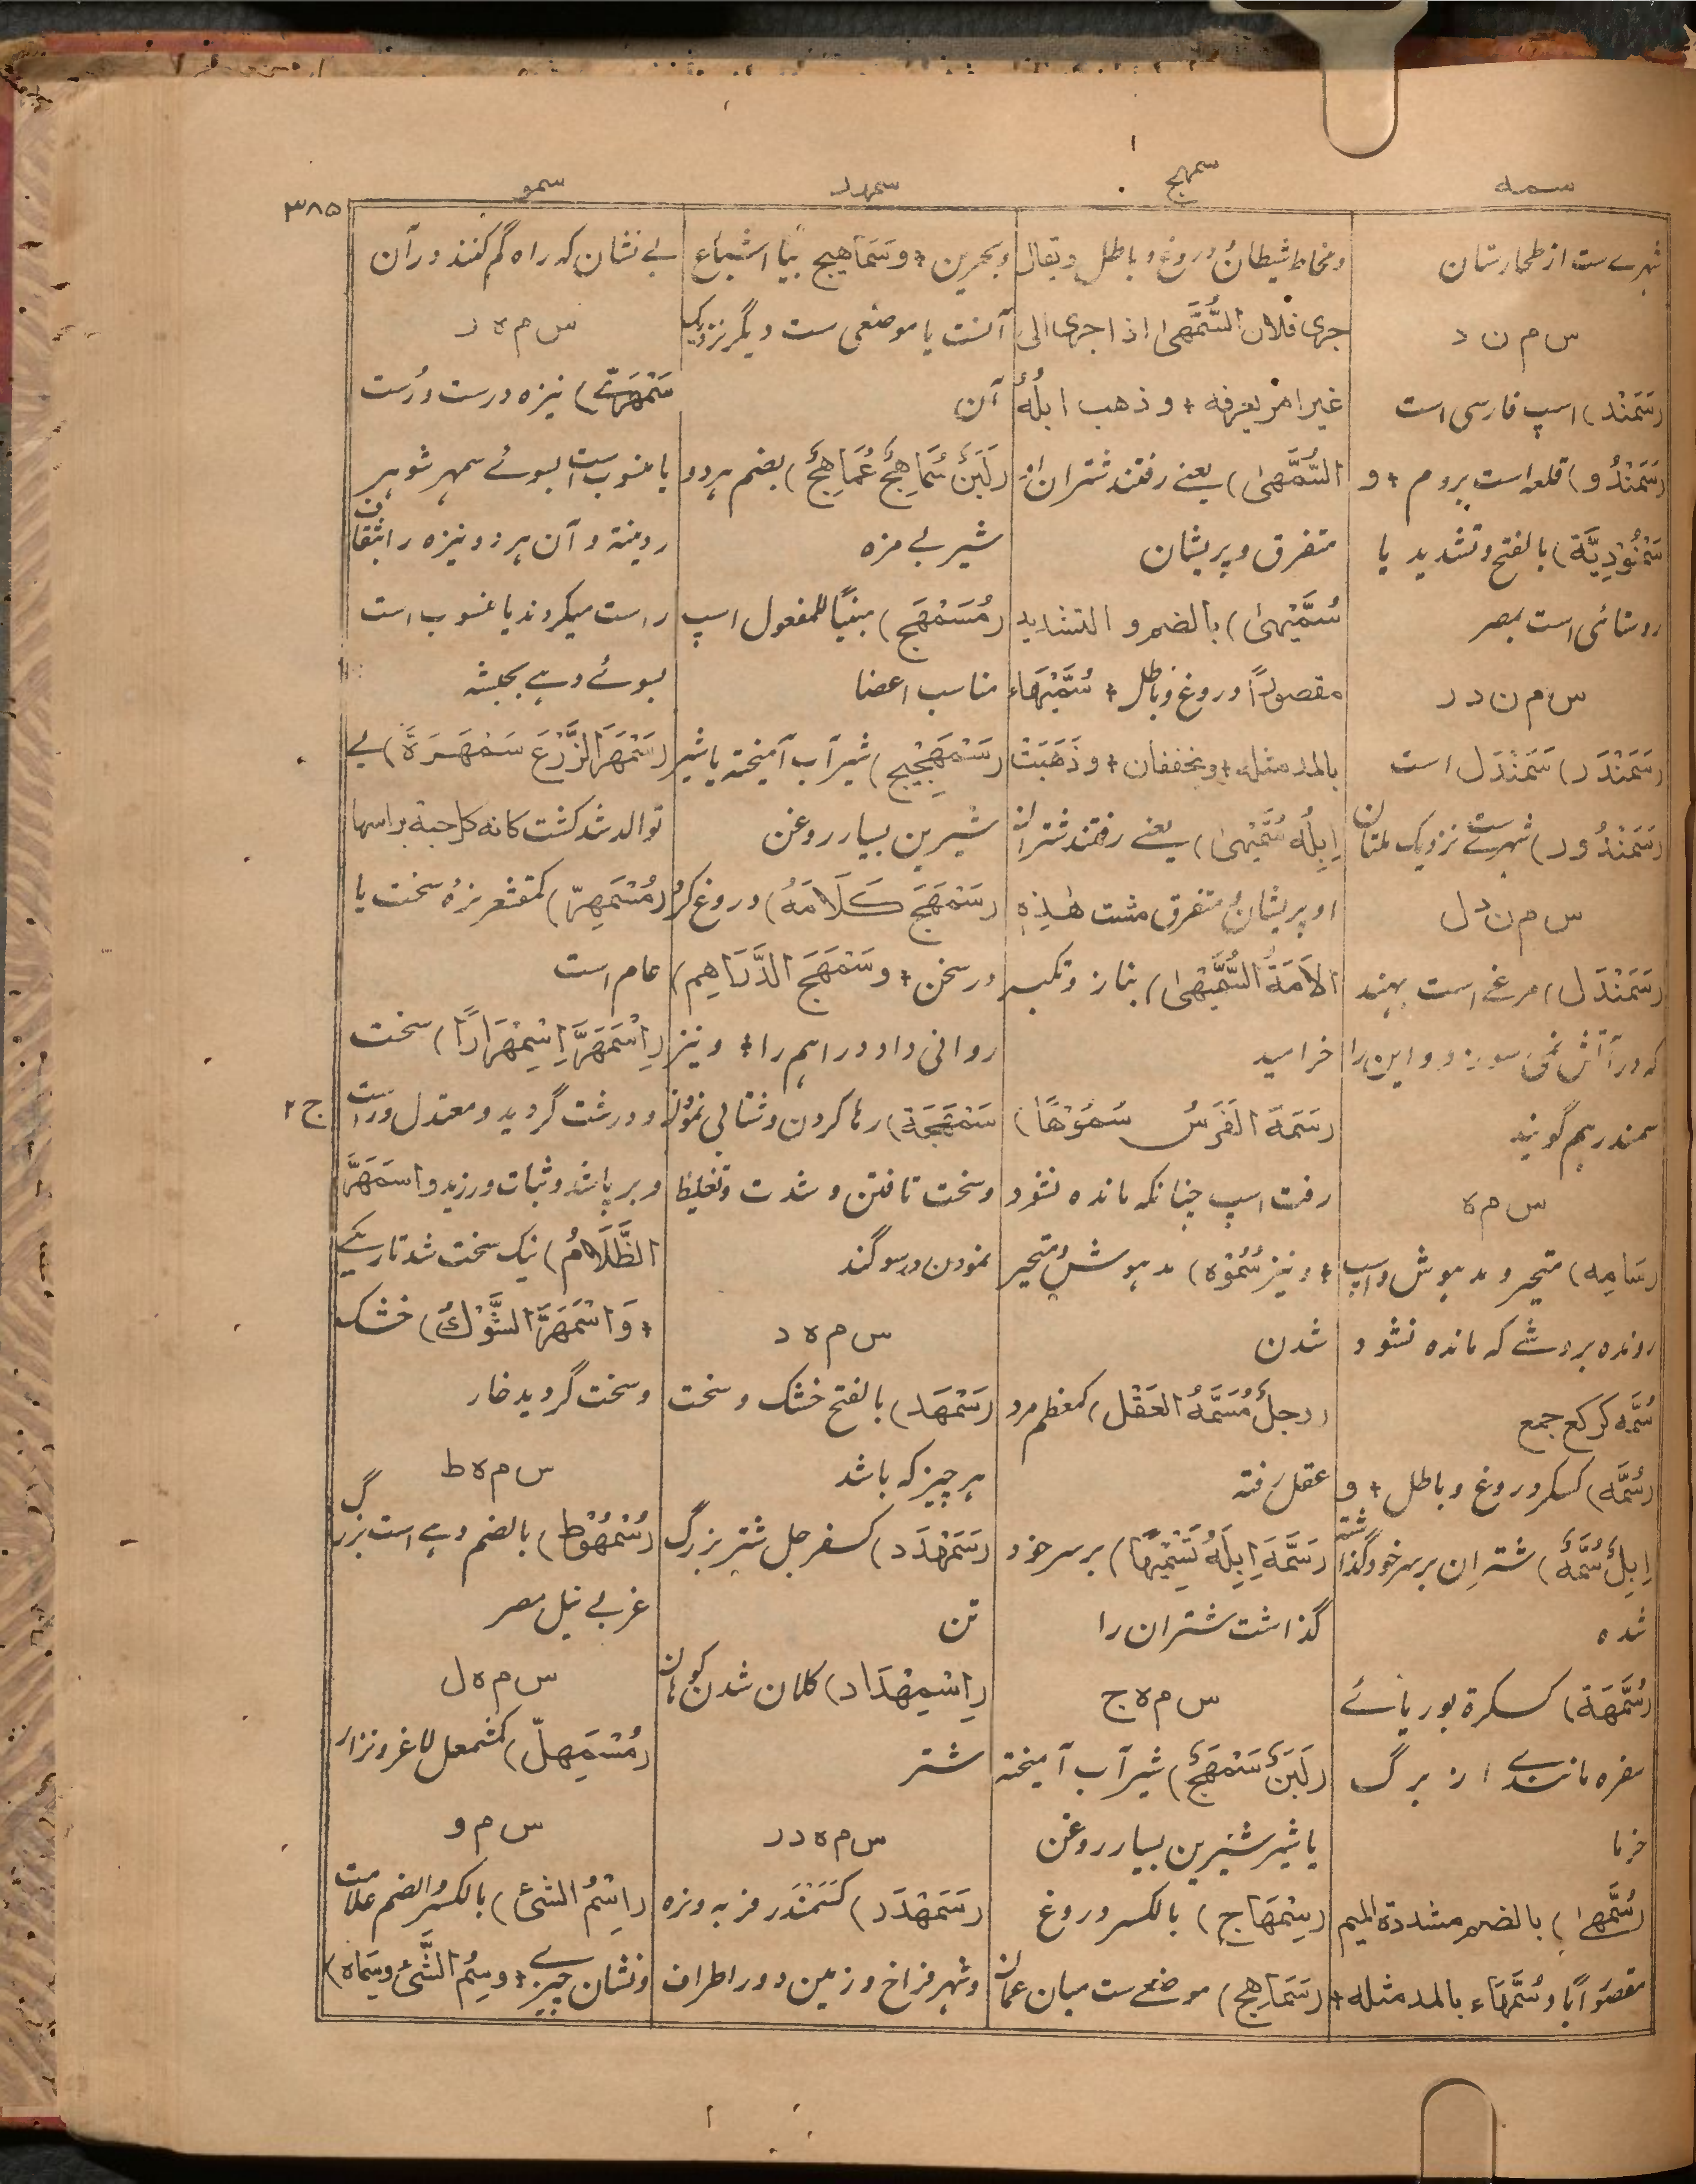 سمه
سمهج
سمهدر
سمو
۳۸۵
شهرےست از طخارستان
س م ن د
(سَمَنْد) اسپ فارسی است
(سَمَنْدُو) قلعه است بروم + و
سَمْنُوْدِيَّة) بالفتح وتشدید یا
روستائی است بمصر
س م ن د ر
(سَمَنْدَر) سَمَنْدَل است
(سَمَنْدُور) شهرےست نزدیک ملتان
س م ن د ل
(سَمَنْدَل) مرغے است بهند
که در آتش نمی سوزد و این را
سمندر هم گویند
س م ه
(سَامِه) متحیر و مدهوش و اسپ
رونده بروشے که مانده نشود
سُمَّه کرکع جمع
(سُمَّه) کسکر دروغ و باطل + و
اِبِلٌ سُمَّهٌ) شتران بر سر خود گذاشته
شده
(سُمَّهَة) کسکرة بوریائے
سفره مانندے از برگ
خرما
(سُمَّهیٰ) بالضم مشددة المیم
مقصورًا و سُمَّهَاء بالمد مثله +
و مخاط شیطان و دروغ و باطل و یقال
جری فلان السُّمَّهیٰ اذا جری الی
غیر امر یعرفه + و ذهب ابلُهُ
السُّمَّهیٰ) یعنے رفتند شتران او
متفرق و پریشان
سُمَّيْهیٰ) بالضم و التشدید
مقصورًا دروغ و باطل + سُمَّيْهَاء
بالمد مثله + و یخففان + و ذَهَبَتْ
اِبِلُه سُمَّيْهیٰ) یعنے رفتند شتران
او پریشان و متفرق مشت هٰذِهِ
الاَمَةُ السُّمَّيْهیٰ) بناز و تکبر
خرامید
(سَمَهَ الفَرَسُ سُمُوْهًا)
رفت اسپ چنانکه مانده نشود
+ و نیز سُمُوْه) مدهوش و متحیر
شدن
(رجلٌ مُسَمَّهُ العَقْل) کمعظم مرد
عقل رفته
(سَمَّهَ اِبِلَهُ تَسْمِيْهًا) بر سر خود
گذاشت شتران را
س م ه ج
(لَبَنٌ سَمْهَجٌ) شیر آب آمیخته
یا شیر شیرین بسیار روغن
(سِمْهَاج) بالکسر دروغ
(سَمَاهِج) موضعےست میان عمان
و بحرین + و سَمَاهِیج بیا اشباع
آنست یا موضعی ست دیگر نزدیک
آن
(لَبَنٌ سُمَاهِجٌ عُمَاهِجٌ) بضم هر دو
شیر بے مزه
(مُسَمْهَج) مبنیًا للمفعول اسپ
مناسب اعضا
(سَمْهَجِيْج) شیر آب آمیخته یا شیر
شیرین بسیار روغن
(سَمْهَجَ كَلَامَهُ) دروغ کرد
در سخن + و سَمْهَجَ الدَّرَاهِم)
روانی داد دراهم را + و نیز
سَمْهَجَة) رها کردن و شتابی نمودن
و سخت تافتن و شدت و تغلیظ
نمودن در سوگند
س م ه د
(سَمْهَد) بالفتح خشک و سخت
هر چیز که باشد
(سَمَهْدَد) کسفرجل شتر بزرگ
تن
(اِسْمِهْدَاد) کلان شدن کوهان
شتر
س م ه د ر
(سَمَهْدَر) کسَمَنْدَر فربه وزه
و شهر فراخ و زمین دور اطراف
بے نشان که راه گم کنند در آن
س م ه ر
سَمْهَرِیّے) نیزه درست و رُست
یا منسوب است بسوئے سمهر شوهر
ردینة و آن هر دو نیزه را ثقاف
راست میکردند یا منسوب است
بسوئے دهے بحبشه
(سَمْهَرَ الزَّرْعُ سَمْهَرَةً) بے
توالد شد کشت کانه کل حبة براسها
(مُسْمَهِرّ) کمقشعر نره سخت یا
عام است
(اِسْمَهَرَّ اِسْمِهْرَارًا) سخت
و درشت گردید و معتدل و راست
ج ۲
و بر پا شد و ثبات ورزید و اسمَهَرَّ
الظَّلَامُ) نیک سخت شد تاریکے
+ وَاسْمَهَرَّ الشَّوْكُ) خشک
و سخت گردید خار
س م ه ط
(سُمْهُوْط) بالضم دهے است بزرگ
غربے نیل مصر
س م ه ل
(مُسْمَهِلّ) کمشمعل لاغر و نزار
س م و
(اِسْمُ الشئ) بالکسر والضم علامت
و نشان چیزے + و سِمُ الشَّئ و سِمَاه)